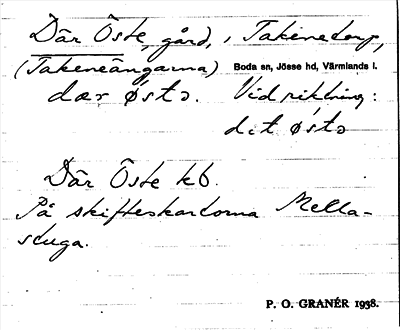 Där Öste, gård, i Takenetorp,
(Takeneängarna) Boda sn, Jösse hd, Värmlands l.
dær østə. Vid riktning:
dit østə
Där Öste kb.
På skifteskartorna Mella-
stuga.
P. O. GRANÉR 1938.